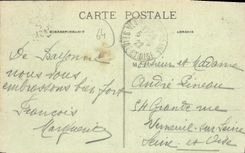 CARTE POSTALE
CORRESPONDANCE
64
De Bayonne
nous vous
embrassons bien fort
François
Marguerite
Monsieur et Madame
André Pineau
54 Grande rue
Verneuil sur Seine
Seine et Oise